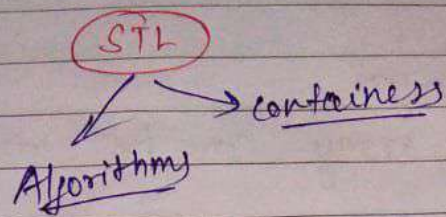 STL
containers
Algorithms